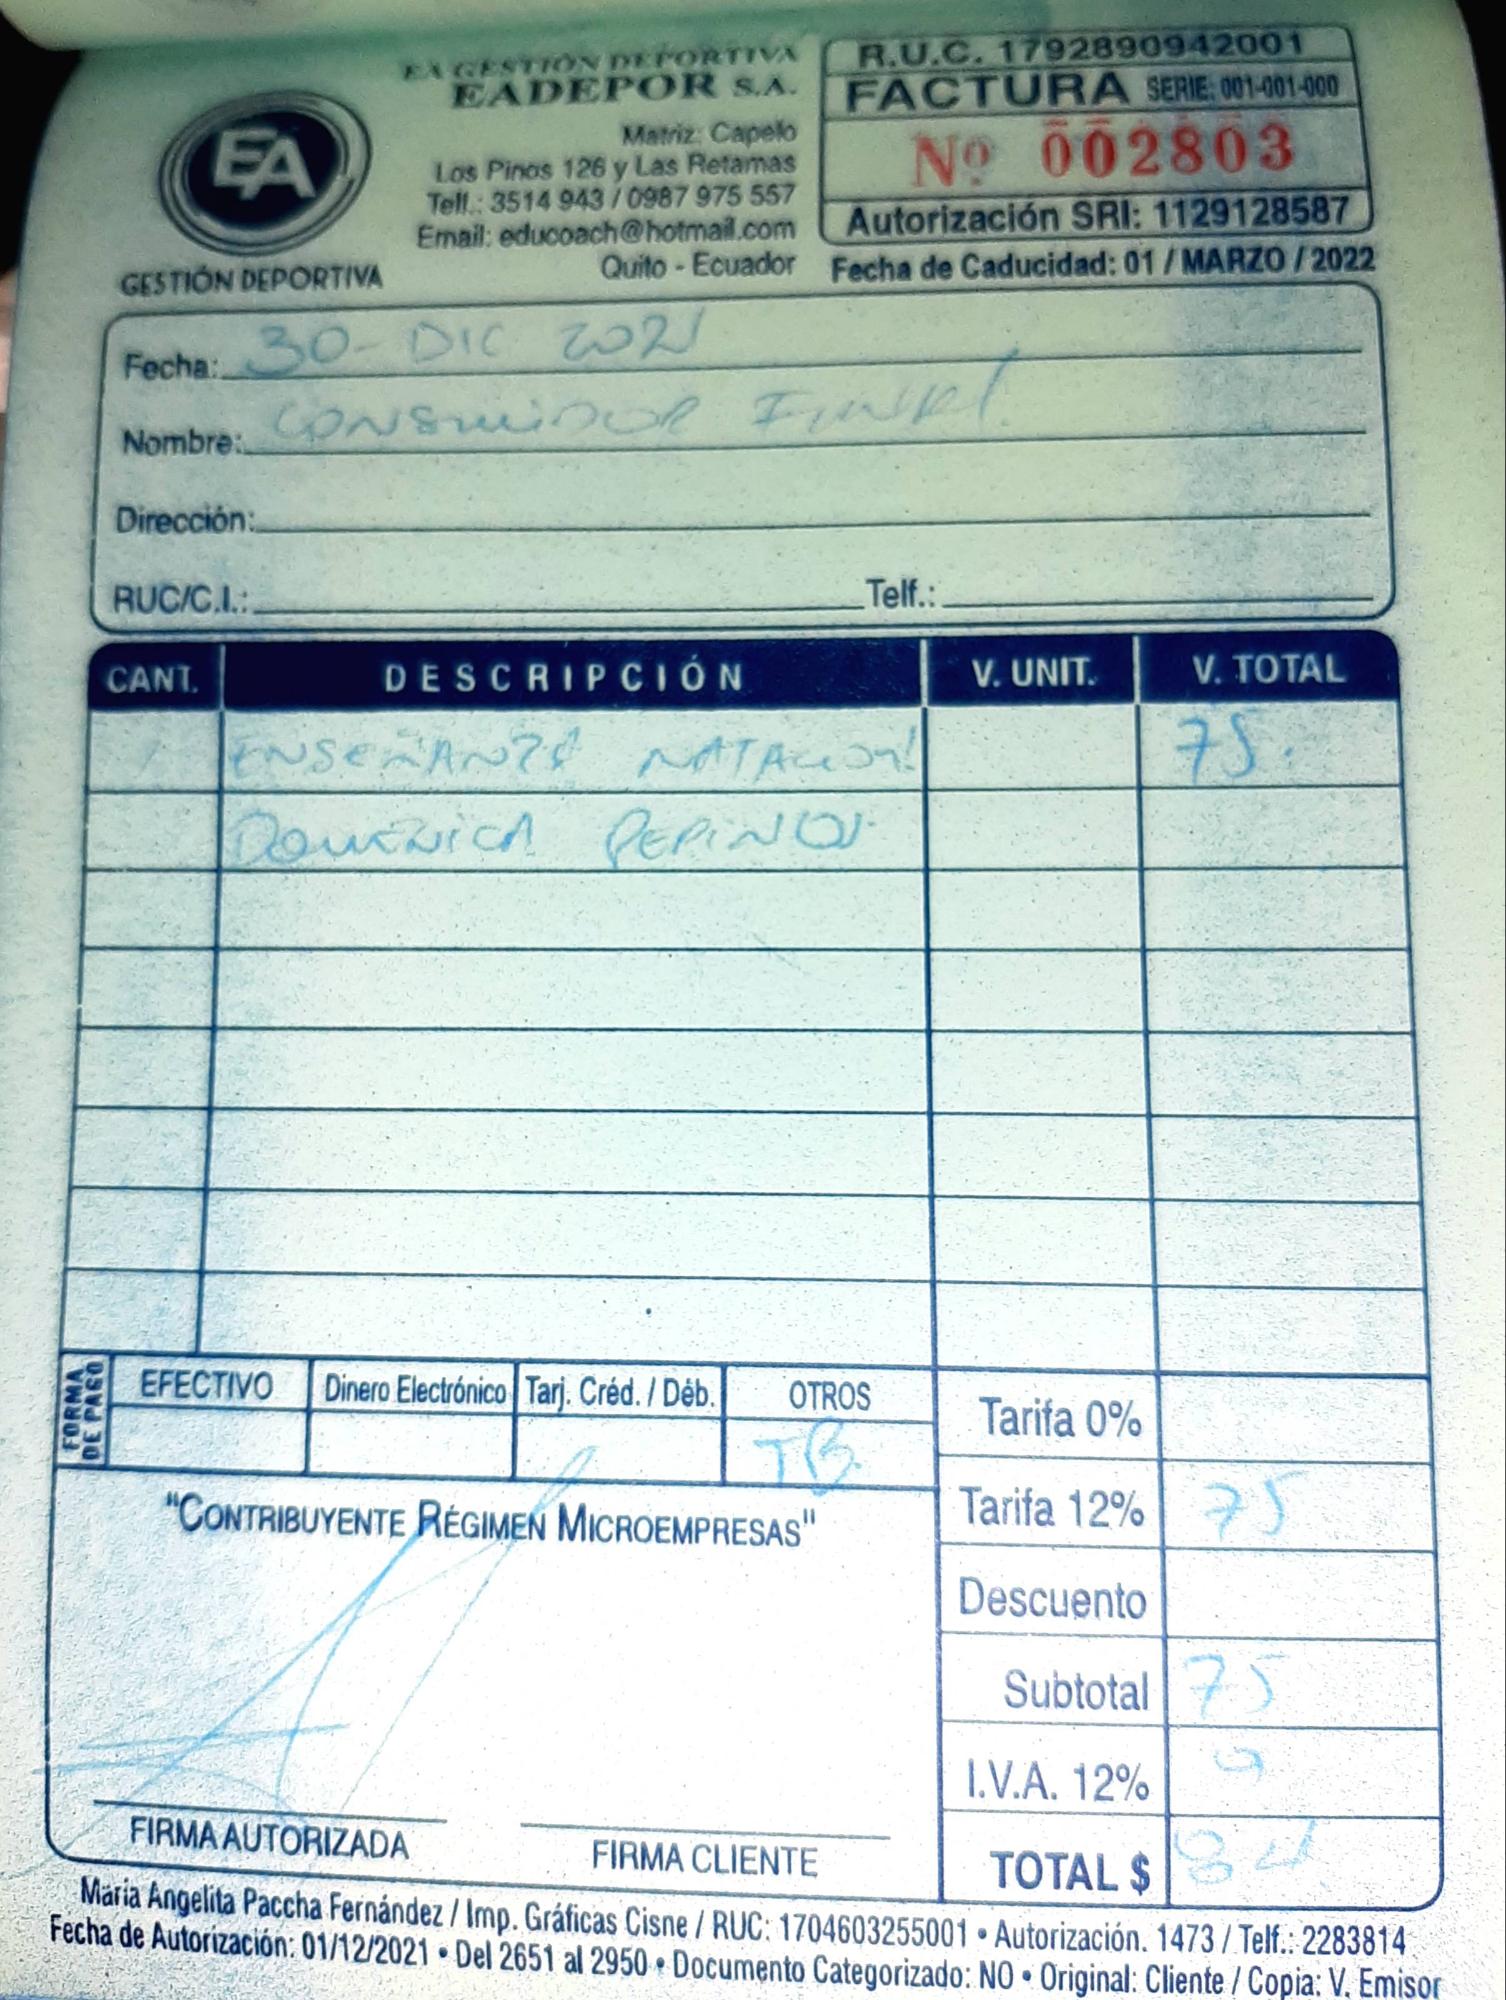 EA GESTIÓN DEPORTIVA
EADEPOR S.A.
Matriz: Capelo
Los Pinos 126 y Las Retamas
Telf.: 3514 943 / 0987 975 557
Email: educoach@hotmail.com
Quito - Ecuador
EA
GESTIÓN DEPORTIVA
R.U.C. 1792890942001
FACTURA SERIE: 001-001-000
Nº 002803
Autorización SRI: 1129128587
Fecha de Caducidad: 01 / MARZO / 2022
Fecha: 30 - DIC 2021
Nombre: CONSUMIDOR FINAL
Dirección:
RUC/C.I.: Telf.:
CANT. DESCRIPCIÓN V. UNIT. V. TOTAL
1 ENSEÑANZA NATACION 75.
DOMENICA PEPINOS
FORMA DE PAGO
EFECTIVO Dinero Electrónico Tarj. Créd. / Déb. OTROS
TB.
Tarifa 0%
Tarifa 12% 75
Descuento
Subtotal 75
I.V.A. 12% 9
TOTAL $ 84
"CONTRIBUYENTE RÉGIMEN MICROEMPRESAS"
FIRMA AUTORIZADA FIRMA CLIENTE
María Angelita Paccha Fernández / Imp. Gráficas Cisne / RUC: 1704603255001 • Autorización. 1473 / Telf.: 2283814
Fecha de Autorización: 01/12/2021 • Del 2651 al 2950 • Documento Categorizado: NO • Original: Cliente / Copia: V. Emisor